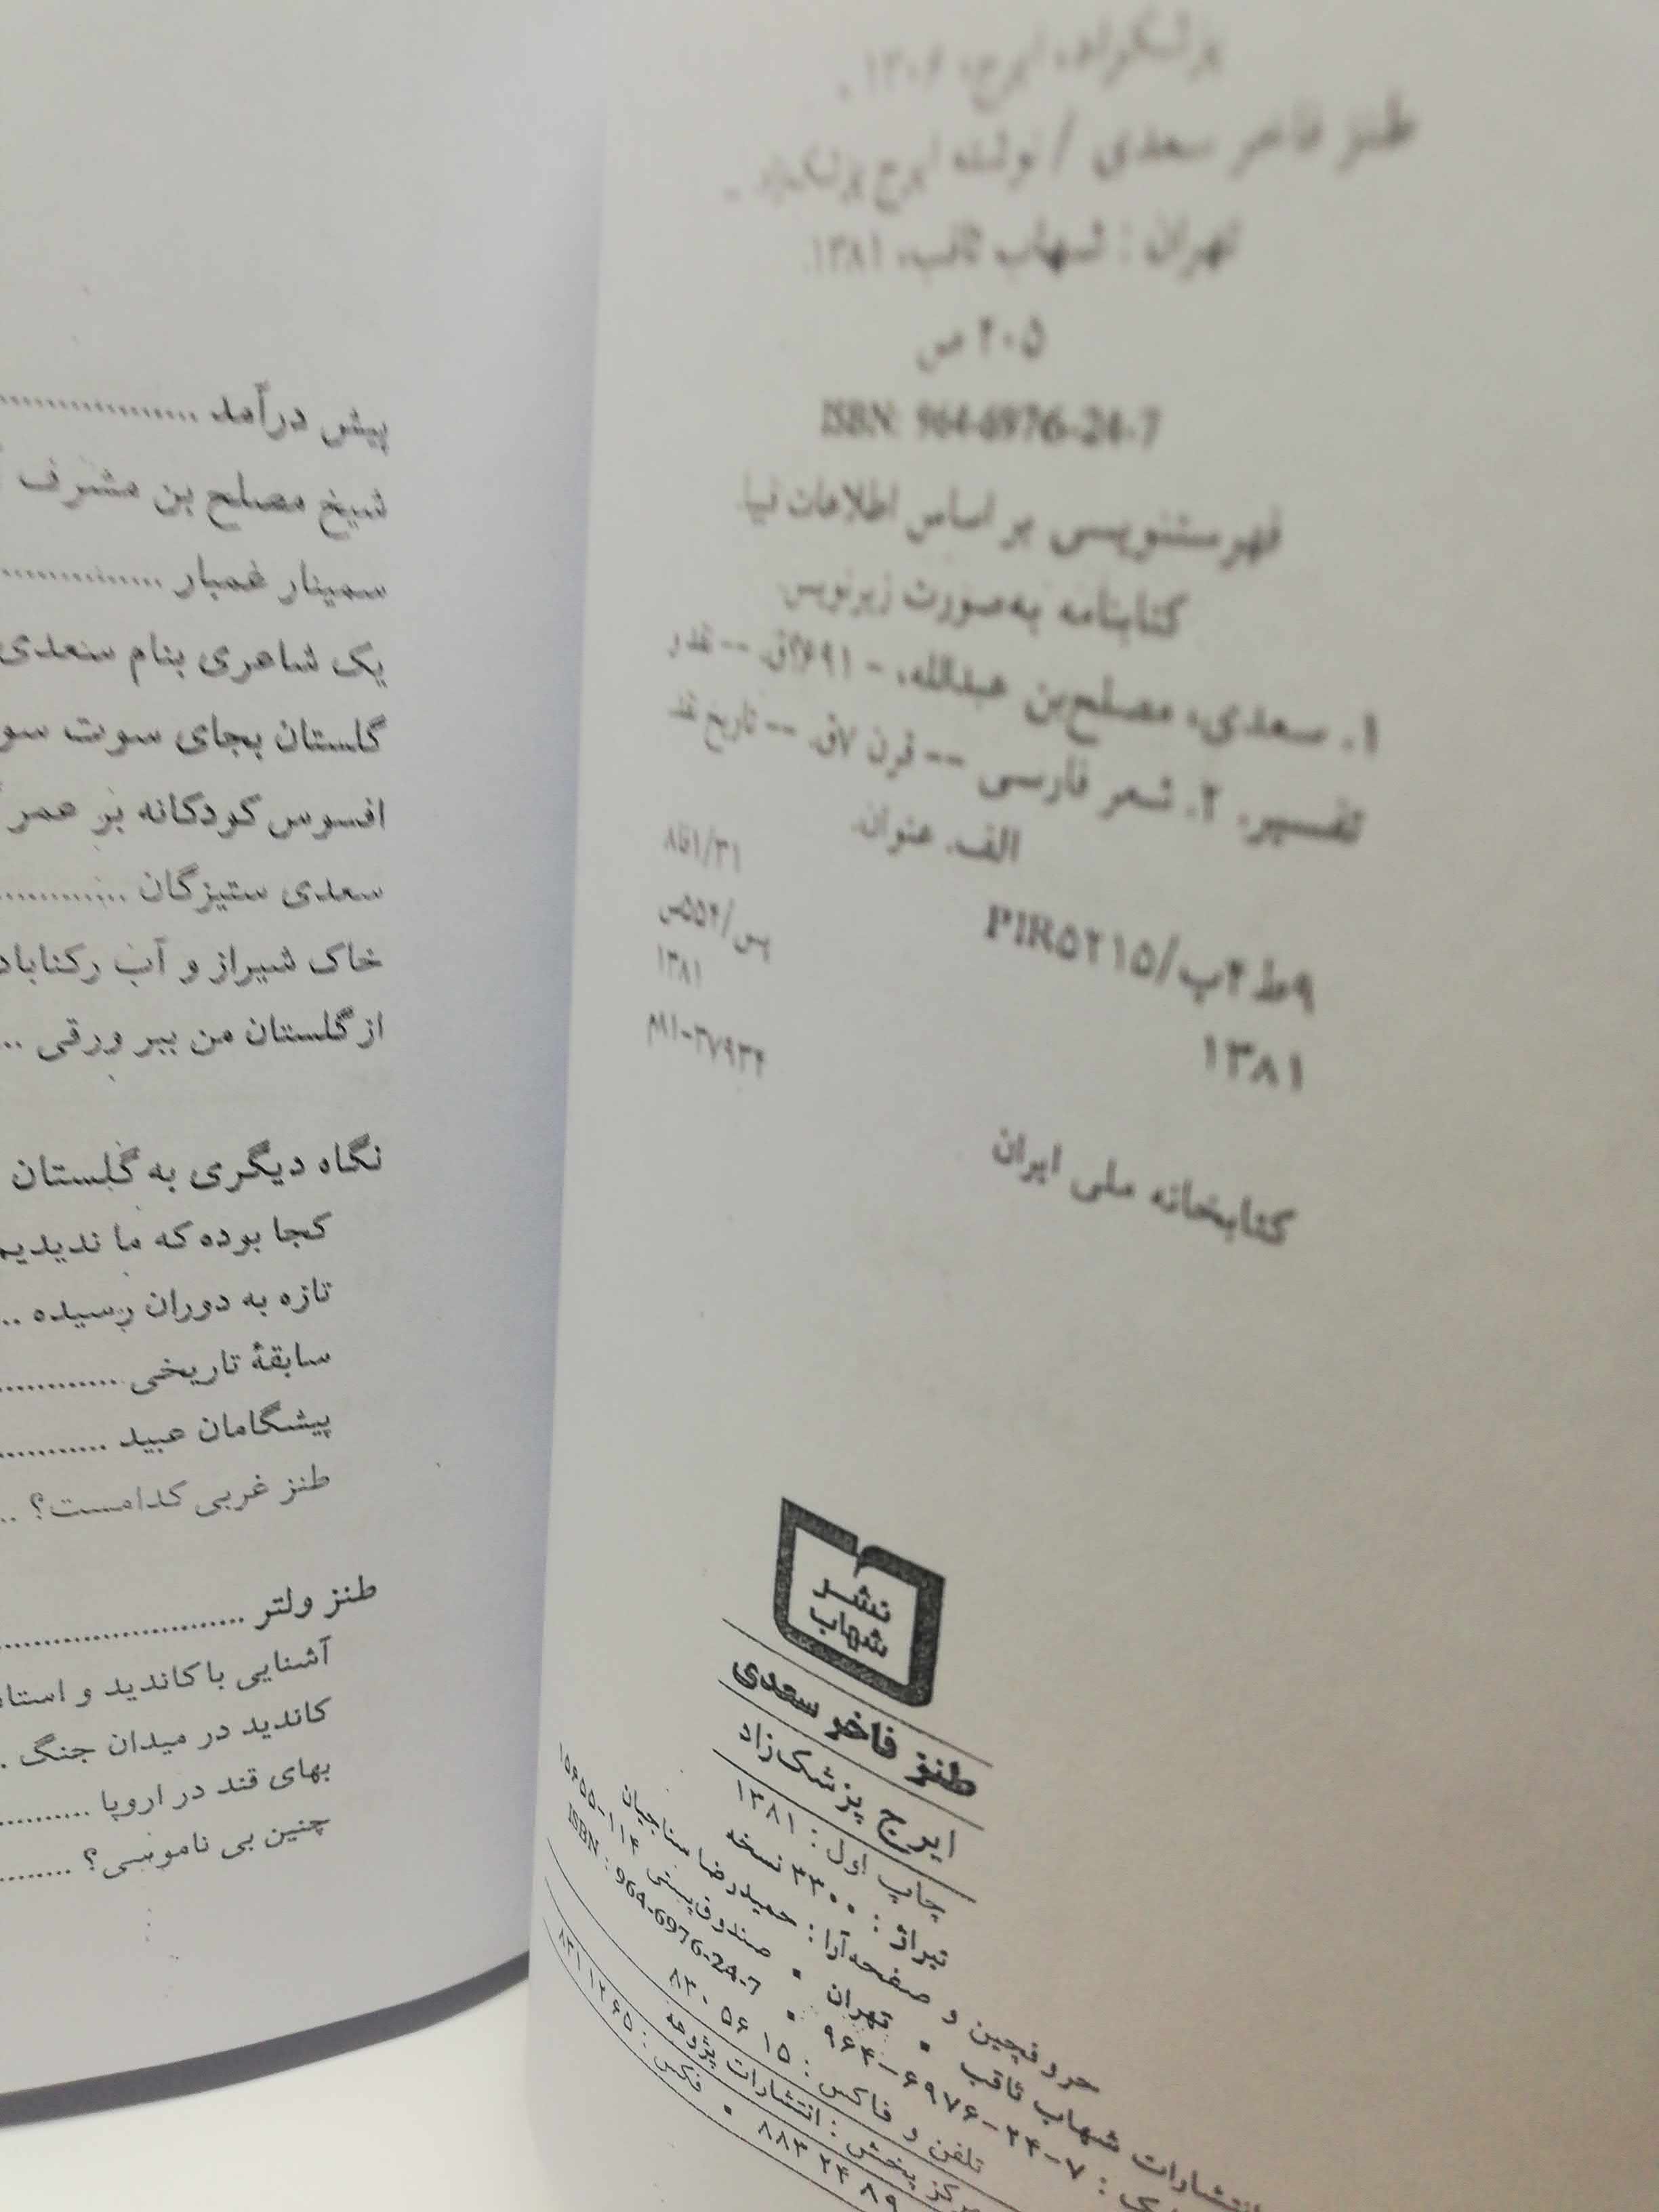 پزشکزاد، ایرج، ۱۳۰۶ -
طنز فاخر سعدی / نوشته ایرج پزشکزاد. -
تهران : شهاب ثاقب، ۱۳۸۱.
۲۰۵ ص
ISBN: 964-6976-24-7
فهرستنویسی بر اساس اطلاعات فیپا.
کتابنامه به‌صورت زیرنویس.
۱. سعدی، مصلح‌بن عبدالله، - ۶۹۱؟ق. -- نقد و
تفسیر. ۲. شعر فارسی -- قرن ۷ق. -- تاریخ و نقد
الف. عنوان.
۹ط۴پ/PIR۵۲۱۵
۸فا۱/۳۱
۱۳۸۱
۱۳۸۱
۳۷۹۳۴-۸۱م
کتابخانه ملی ایران
نشر
شهاب
طنز فاخر سعدی
ایرج پزشک‌زاد
چاپ اول : ۱۳۸۱
تیراژ : ۳۳۰۰ نسخه
حروفچین و صفحه‌آرا : حمیدرضا سناجیان
انتشارات شهاب ثاقب • تهران • صندوق‌پستی ۱۱۴-۱۵۶۵۵
: ۷-۲۴-۶۹۷۶-۹۶۴ • ISBN : 964-6976-24-7
تلفن و فاکس : ۱۵ ۵۶ ۸۳۰
مرکز پخش : انتشارات پژوهه
۸۹ ۲۴ ۸۸۳ • فکس : ۸۳۱۱۲۶۵
پیش درآمد ................
شیخ مصلح بن مشرف
سمینار غمبار ..............
یک شاعری بنام سعدی
گلستان بجای سوت سو
افسوس کودکانه بر عمر
سعدی ستیزگان ............
خاک شیراز و آب رکناباد
از گلستان من ببر ورقی ..
نگاه دیگری به گلستان
کجا بوده که ما ندیدیم
تازه به دوران رسیده ..
سابقهٔ تاریخی ............
پیشگامان عبید ...........
طنز غربی کدامست؟ ..
طنز ولتر ........................
آشنایی با کاندید و استا
کاندید در میدان جنگ .
بهای قند در اروپا ..........
چنین بی ناموسی؟ ........